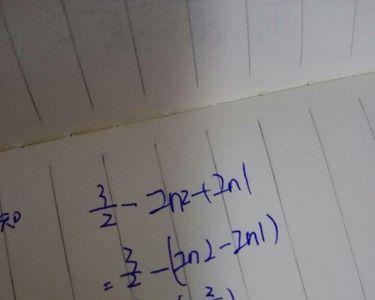 知 3/2 - ln2 + ln1
= 3/2 - (ln2 - ln1)